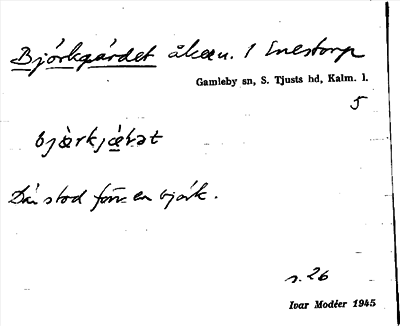 Björkgärdet åker. 1 Enestorp
Gamleby sn, S. Tjusts hd, Kalm. l.
5
bjärkjáɾət
Där stod förr en björk.
s. 26
Ivar Modéer 1945